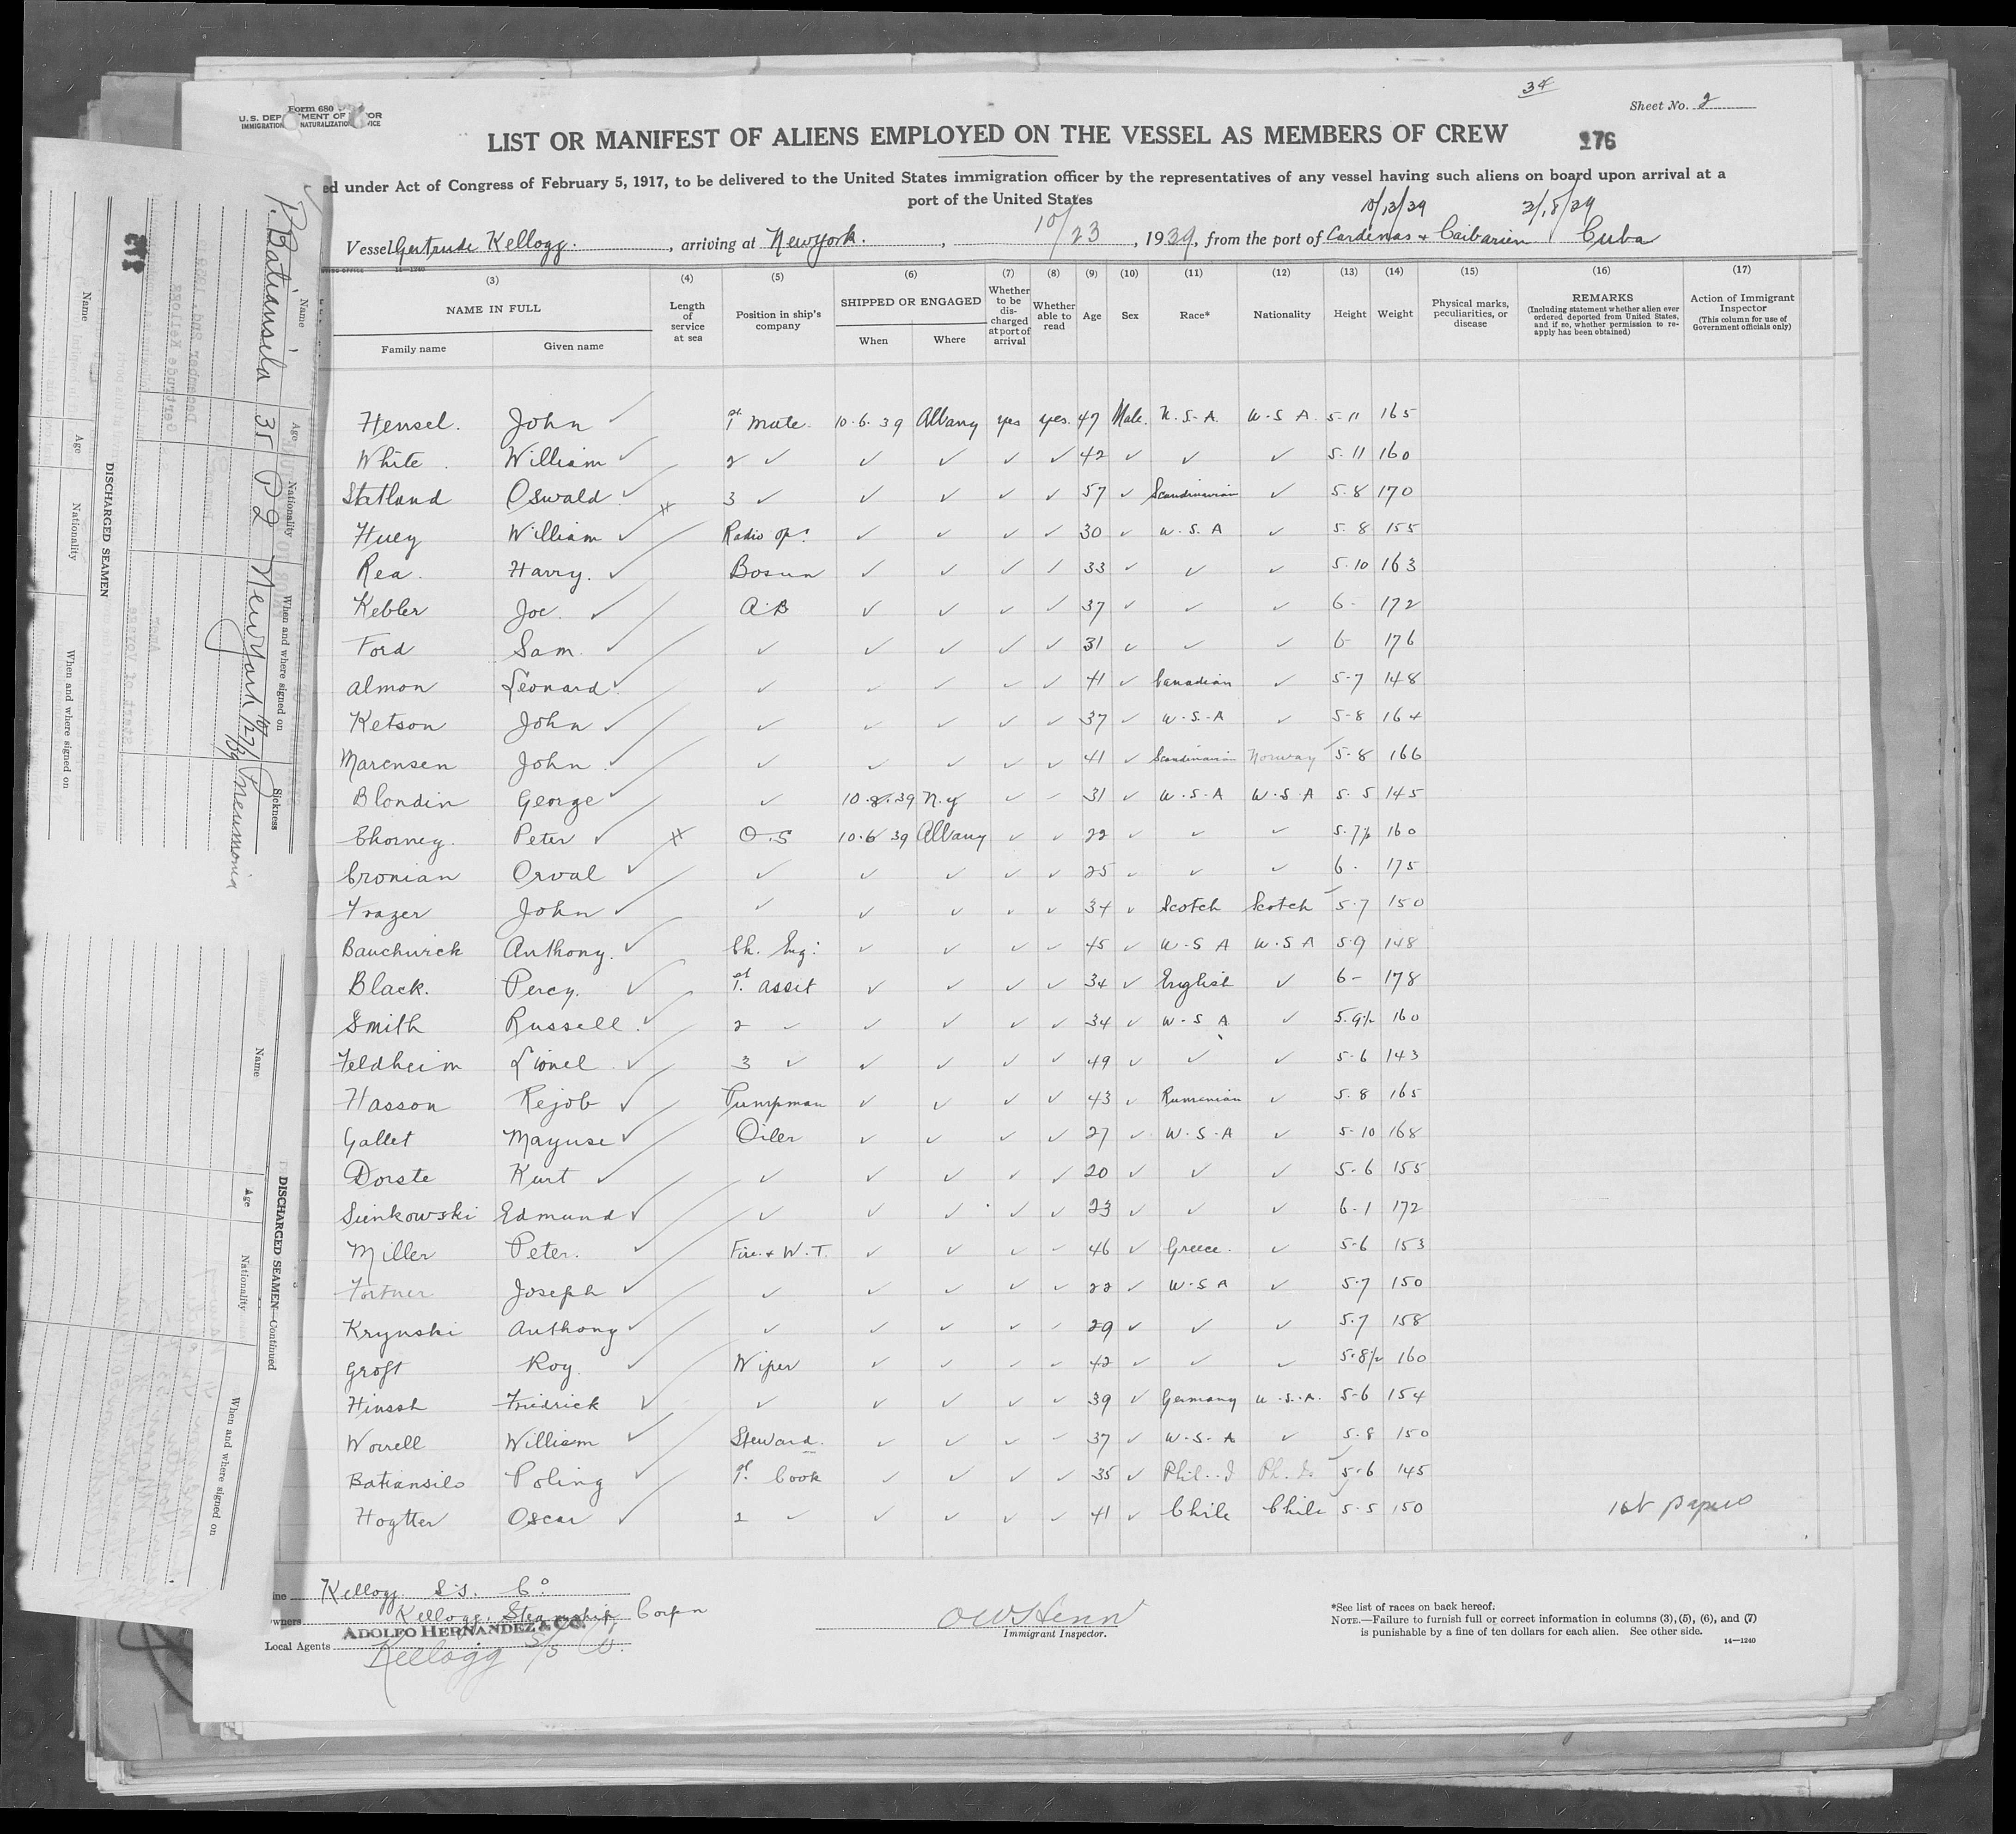 34
Sheet No. 2
Form 680
U.S. DEP MENT OF OR
IMMIGRATION NATURALIZATION VICE
LIST OR MANIFEST OF ALIENS EMPLOYED ON THE VESSEL AS MEMBERS OF CREW
176
ed under Act of Congress of February 5, 1917, to be delivered to the United States immigration officer by the representatives of any vessel having such aliens on board upon arrival at a
port of the United States
10/13/39
Vessel Gertrude Kellogg. , arriving at New York. , 10/23 , 1939, from the port of Cardenas & Caibarien Cuba
(3) (4) (5) (6) (7) (8) (9) (10) (11) (12) (13) (14) (15) (16) (17)
NAME IN FULL Family name Given name
Length of service at sea
Position in ship's company
SHIPPED OR ENGAGED When Where
Whether to be discharged at port of arrival
Whether able to read
Age Sex Race* Nationality Height Weight
Physical marks, peculiarities, or disease
REMARKS (Including statement whether alien ever ordered deported from United States, and if so, whether permission to reapply has been obtained)
Action of Immigrant Inspector (This column for use of Government officials only)
Hensel. John ✓ 1st mate. 10.6.39 Albany yes yes. 47 Male. U.S.A. U.S.A. 5-11 165
White William ✓ 2 ✓ ✓ ✓ ✓ ✓ 42 ✓ ✓ ✓ 5.11 160
Statland Oswald ✓ 3 ✓ ✓ ✓ ✓ ✓ 57 ✓ Scandinavian ✓ 5.8 170
Huey William ✓ Radio op. ✓ ✓ ✓ ✓ 30 ✓ U.S.A ✓ 5.8 155
Rea. Harry. ✓ Bosun ✓ ✓ ✓ ✓ 33 ✓ ✓ ✓ 5.10 163
Kebler Joe. ✓ A.B ✓ ✓ ✓ ✓ 37 ✓ ✓ ✓ 6- 172
Ford Sam. ✓ ✓ ✓ ✓ ✓ ✓ 31 ✓ ✓ ✓ 6- 176
Almon Leonard ✓ ✓ ✓ ✓ ✓ ✓ 41 ✓ Canadian ✓ 5-7 148
Ketson John ✓ ✓ ✓ ✓ ✓ ✓ 37 ✓ U.S.A ✓ 5-8 164
Marensen John ✓ ✓ ✓ ✓ ✓ ✓ 41 ✓ Scandinavian Norway 5-8 166
Blondin George ✓ ✓ 10.8.39 N.y ✓ ✓ 31 ✓ U.S.A U.S.A 5.5 145
Chorney. Peter ✓ O.S 10.6 39 Albany ✓ ✓ 22 ✓ ✓ ✓ 5.7½ 160
Cronian Orval ✓ ✓ ✓ ✓ ✓ ✓ 25 ✓ ✓ ✓ 6- 175
Frazer John ✓ ✓ ✓ ✓ ✓ ✓ 34 ✓ Scotch Scotch 5-7 150
Bauchwick Anthony. ✓ Ch. Eng. ✓ ✓ ✓ ✓ 45 ✓ U.S A U.S A 5.9 148
Black. Percy. ✓ 1st. asset ✓ ✓ ✓ ✓ 34 ✓ English ✓ 6- 178
Smith Russell. ✓ 2 ✓ ✓ ✓ ✓ ✓ 34 ✓ U.S A ✓ 5.9½ 160
Feldheim Lionel ✓ 3 ✓ ✓ ✓ ✓ ✓ 49 ✓ ✓ ✓ 5-6 143
Hasson Rejob ✓ Pumpman ✓ ✓ ✓ ✓ 43 ✓ Rumenian ✓ 5.8 165
Gallet Mayuse ✓ Oiler ✓ ✓ ✓ ✓ 27 ✓ U.S.A ✓ 5-10 168
Dorste Kurt ✓ ✓ ✓ ✓ ✓ ✓ 20 ✓ ✓ ✓ 5-6 155
Sienkowski Edmund ✓ ✓ ✓ ✓ ✓ ✓ 23 ✓ ✓ ✓ 6-1 172
Miller Peter. ✓ Fire. & W.T. ✓ ✓ ✓ ✓ 46 ✓ Greece. ✓ 5-6 153
Fortner Joseph ✓ ✓ ✓ ✓ ✓ ✓ 22 ✓ U.S A ✓ 5.7 150
Krynski Anthony ✓ ✓ ✓ ✓ ✓ ✓ 29 ✓ ✓ ✓ 5.7 158
Groft Roy. ✓ Wiper ✓ ✓ ✓ ✓ 42 ✓ ✓ ✓ 5-8½ 160
Hinssh Fredrick ✓ ✓ ✓ ✓ ✓ ✓ 39 ✓ Germany U.S.A. 5-6 154
Worrell William ✓ Steward. ✓ ✓ ✓ ✓ 37 ✓ U.S.A ✓ 5.8 150
Batiansilo Poling ✓ 1st. Cook ✓ ✓ ✓ ✓ 35 ✓ Phil. I Ph. Is 5-6 145
Hogtter Oscar ✓ 2 ✓ ✓ ✓ ✓ ✓ 41 ✓ Chile Chile 5-5 150 1st papers
ine Kellogg S.S. Co
wners Kellogg Steamship Corpn
ADOLFO HERNANDEZ & CO.
Local Agents Kellogg S/S Co.
Immigrant Inspector.
*See list of races on back hereof.
NOTE.—Failure to furnish full or correct information in columns (3), (5), (6), and (7)
is punishable by a fine of ten dollars for each alien. See other side.
14—1240
DISCHARGED SEAMEN
Name Age Nationality When and where signed on
Name Age Nationality When and where signed on Sickness
P. Batiansila 35 P I New York 10/27/39 Pneumonia
DISCHARGED SEAMEN—Continued
Name Age Nationality When and where signed on